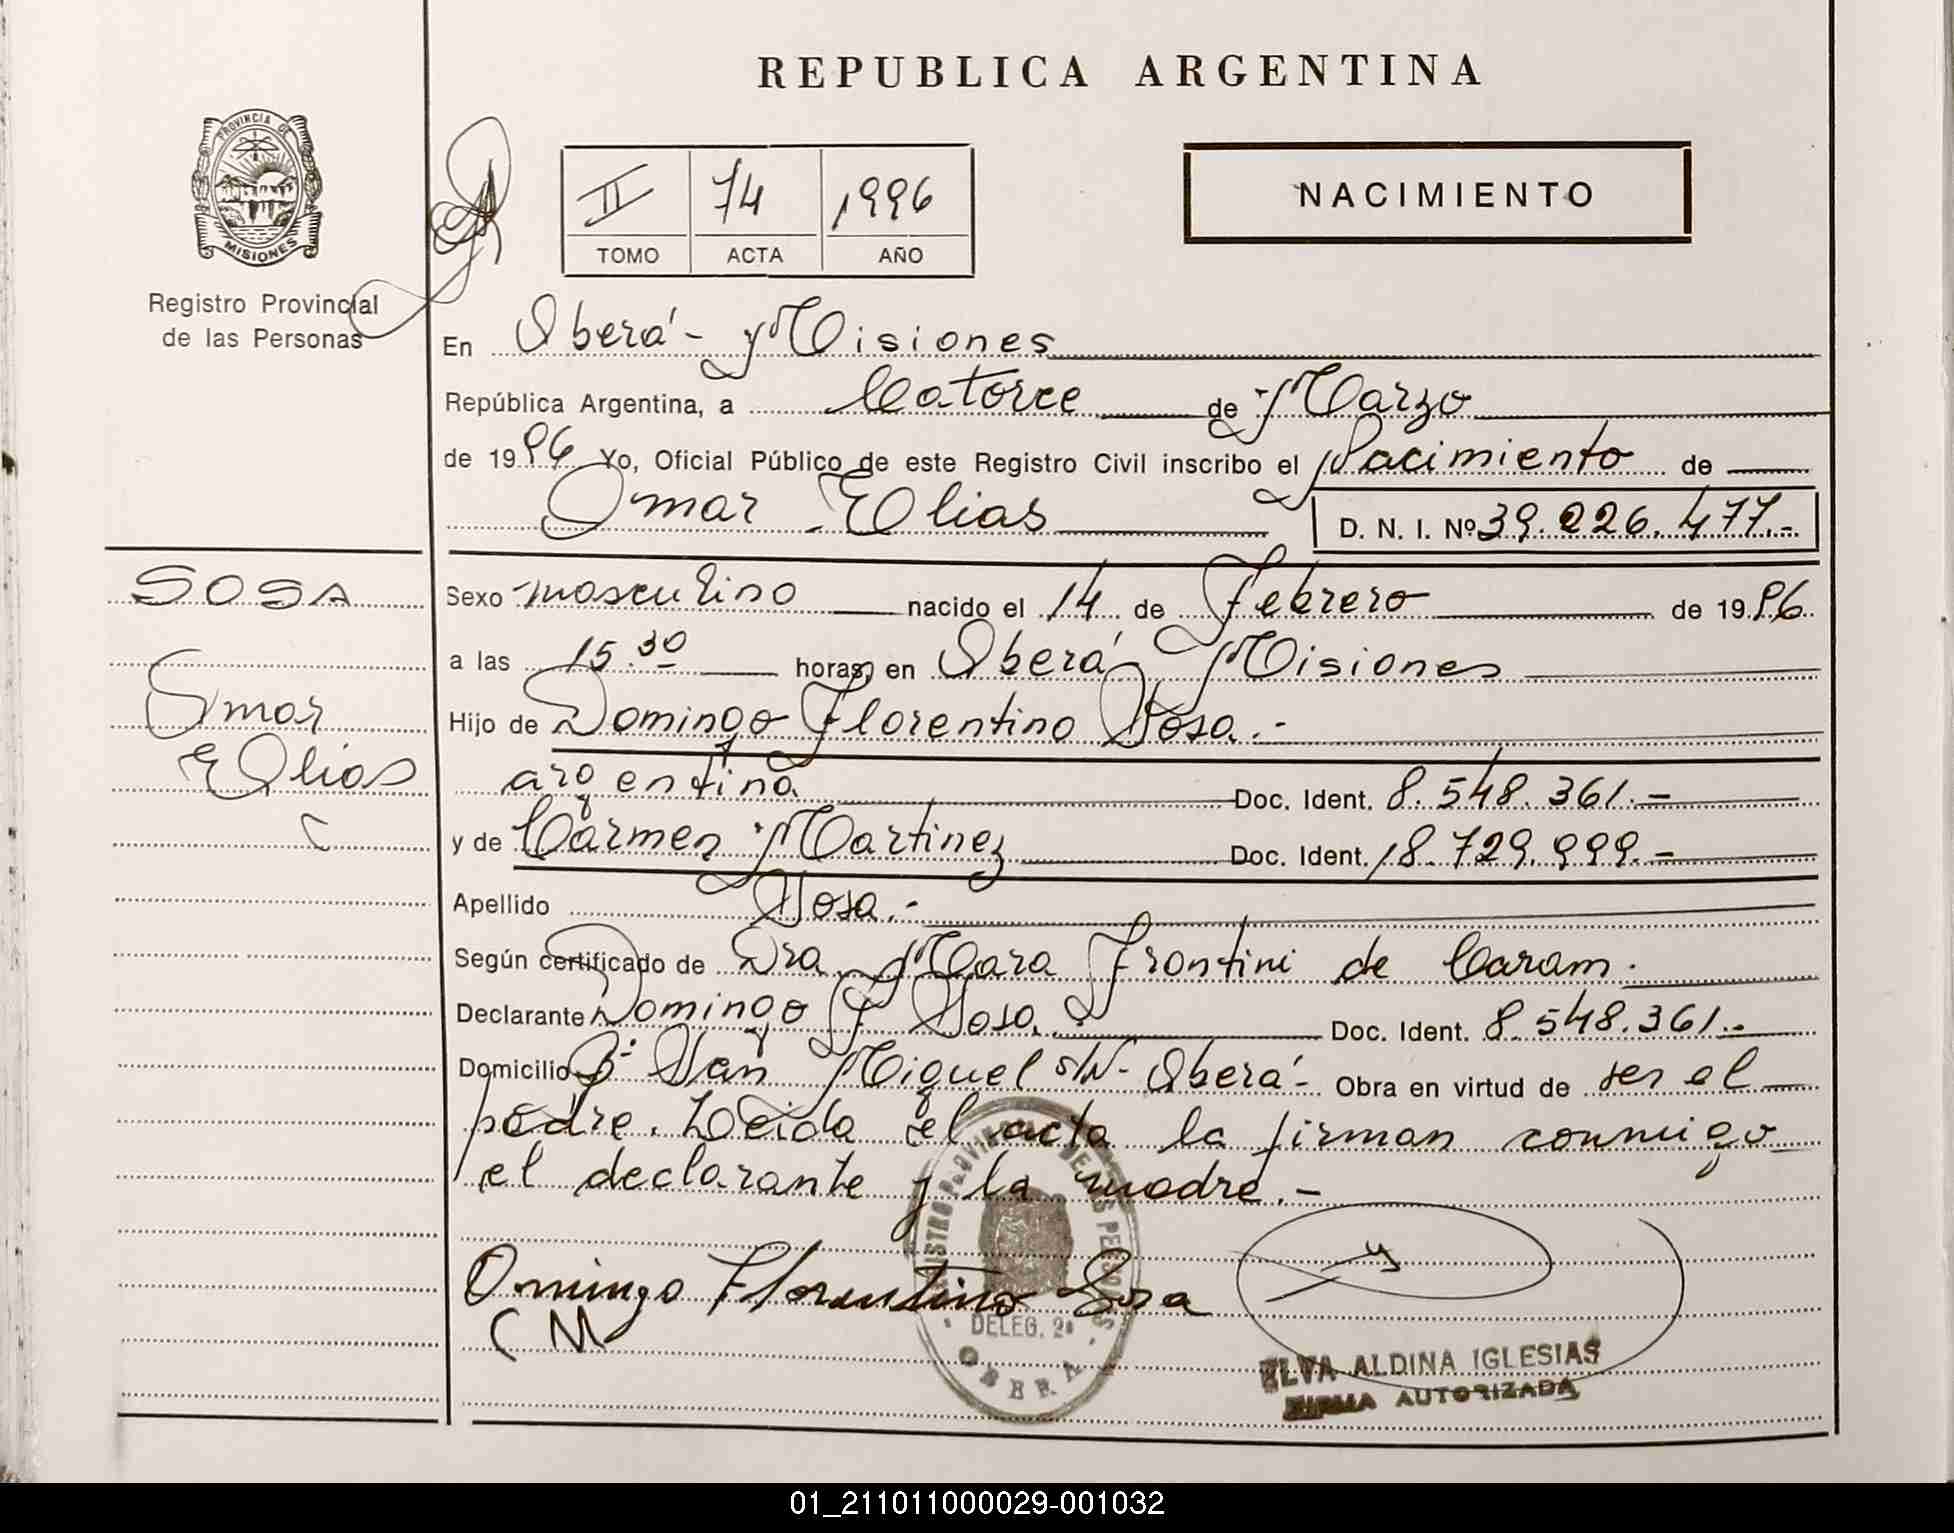 REPUBLICA ARGENTINA
PROVINCIA DE
MISIONES
Registro Provincial
de las Personas
II 74 1996
TOMO ACTA AÑO
NACIMIENTO
En Oberá - Misiones
República Argentina, a Catorce de Marzo
de 1996 Yo, Oficial Público de este Registro Civil inscribo el Nacimiento de
Omar Elias D. N. I. Nº 39.226.477.-
SOSA
Omar
Elias
Sexo masculino nacido el 14 de Febrero de 1996
a las 15.30 horas, en Oberá, Misiones
Hijo de Domingo Florentino Sosa.-
argentina Doc. Ident. 8.548.361.-
y de Carmen Martinez Doc. Ident. 18.729.999.-
Apellido Sosa.-
Según certificado de Dra. Mara Frontini de Caram.
Declarante Domingo F. Sosa.- Doc. Ident. 8.548.361.-
Domicilio Bº San Miguel s/Nº- Oberá- Obra en virtud de ser el
padre. Leida el acta la firman conmigo
el declarante y la madre.-
Omingo Florentino Sosa
C M
REGISTRO PROVINCIAL DE LAS PERSONAS
DELEG. 2ª
OBERA
ELVA ALDINA IGLESIAS
FIRMA AUTORIZADA
01_211011000029-001032